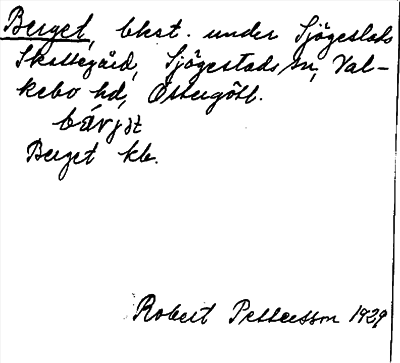 Berget, bkst. under Sjögestads
Skattegård, Sjögestads sn, Val-
kebo hd, Östergötl.
bárjət
Berget kb.
Robert Pettersson 1929